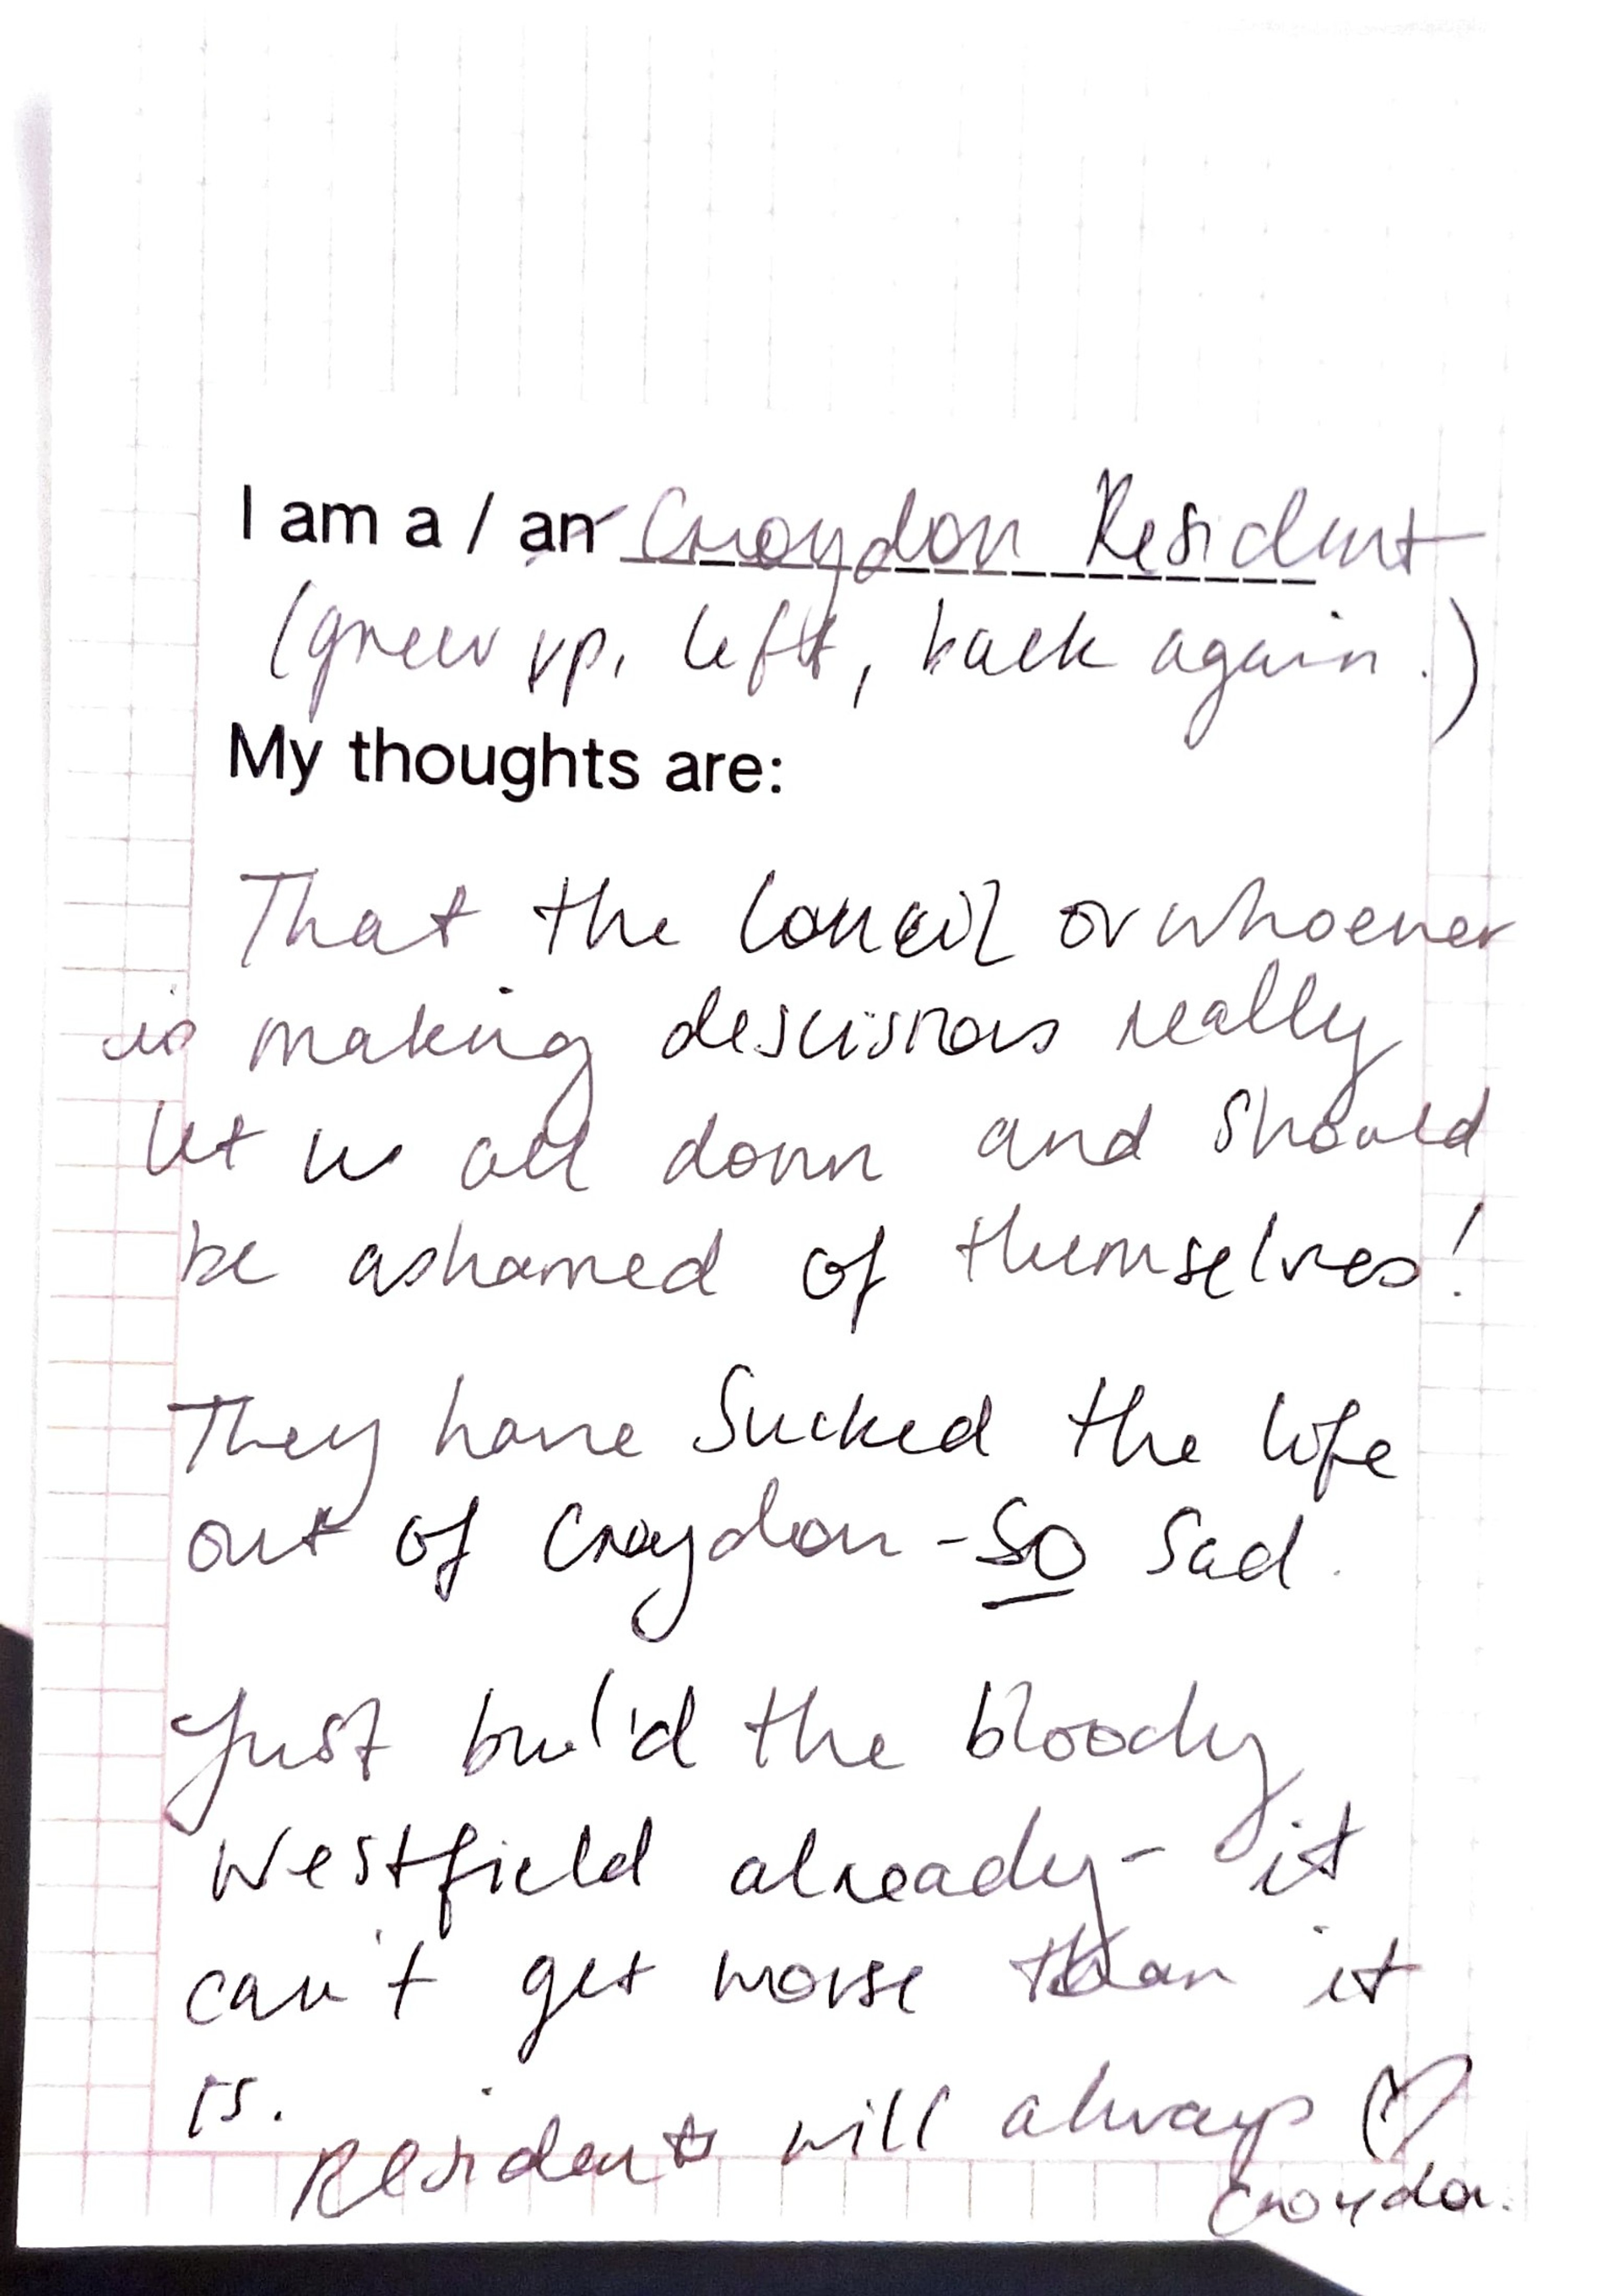 I am a / an Croydon Resident
(grew up, left, back again.)
My thoughts are:
That the Council or whoever
is making descisions really
let us all down and should
be ashamed of themselves!
They have sucked the life
out of Croydon - SO sad.
Just build the bloody
Westfield already - it
can't get worse than it
is.
Residents will always ♡
Croydon.